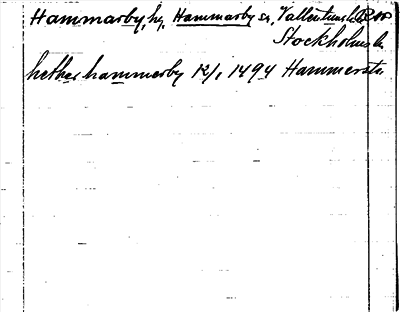 Hammarby, by, Hammarby sn, Vallentuna hd
Stockholms l.
hethær hammerby 12/1 1494 Hammersta